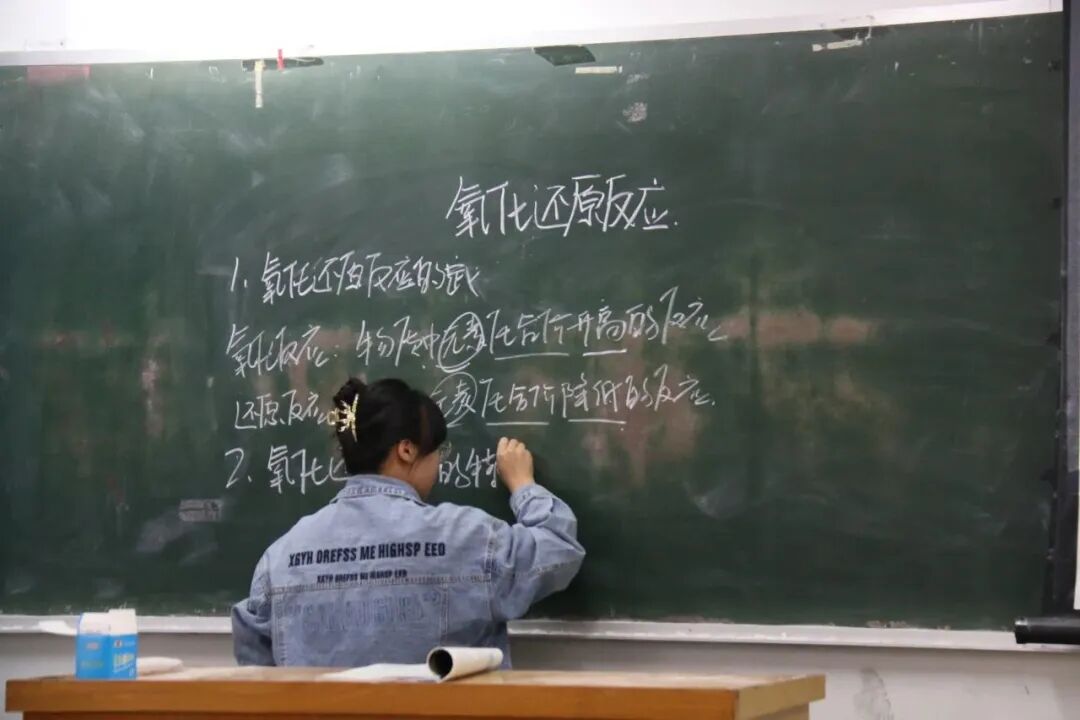 氧化还原反应.
1. 氧化还原反应的
氧化反应: 物质中元素化合价升高的反应.
还原反应 元素化合价降低的反应.
2. 氧化 的特
XGYH OREFSS ME HIGHSP EEO
XGYH OREFSS ME HIGHSP EEO